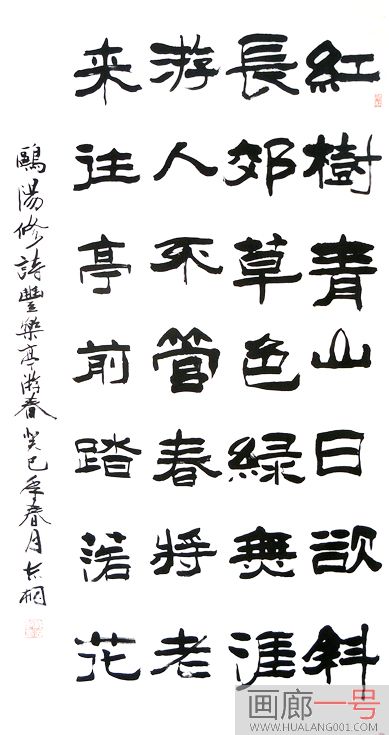 紅樹青山日欲斜
長郊草色綠無涯
游人不管春將老
来往亭前踏落花
鷗陽修詩豐樂亭游春癸巳年春月桐
画廊一号
WWW.HUALANG001.COM